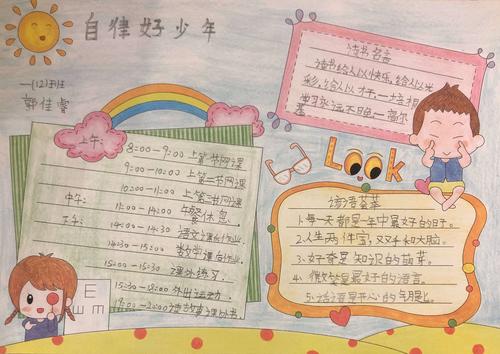 自律好少年
一(12)班
郭佳睿
上午:
8:00-9:00 上第一节网课
9:00-10:00 上第二节网课
10:00-11:00 上第三节网课
中午:
11:00-14:00 午餐休息.
下午:
14:00-14:30 语文课后作业
14:30-15:00 数学课后作业
15:00-15:30 课外练习.
15:30-18:00 外出运动.
19:00-20:00 读故事课外书.
读书名言
读书给人以快乐、给人以光
彩、给人以才
学习永远不晚 高尔
基
Look
谚语荟萃
1.每一天都是一年中最好的日子。
2.人生两件宝,双手和大脑。
3.好奇是知识的萌芽。
4.微笑是最好的语言。
5.活泼是开心的钥匙。
E
E
m